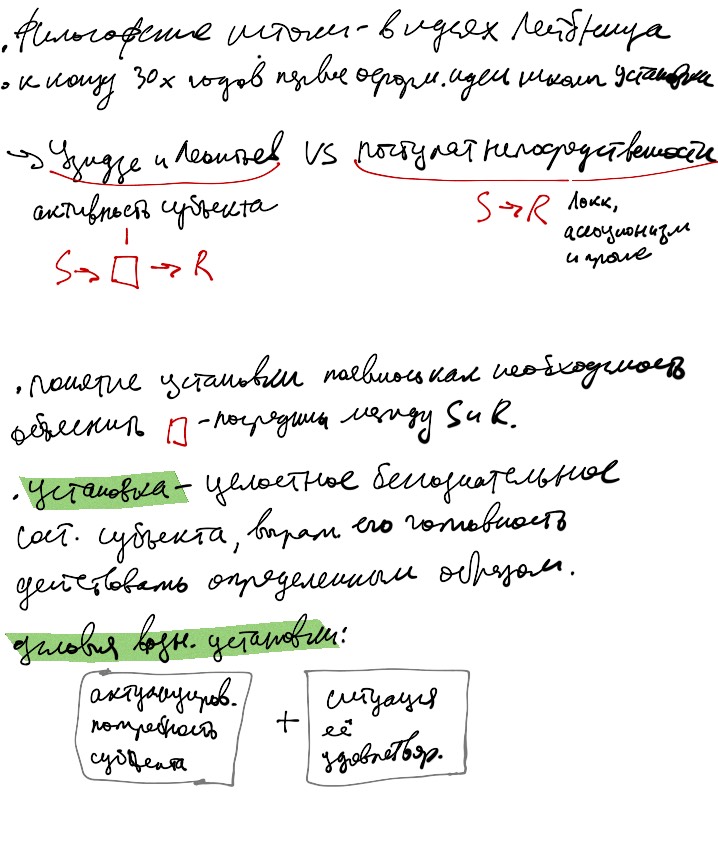 . Философские истоки - в идеях Лейбница
. к концу 30х годов первые оформ. идеи школы установки
→ Узнадзе и Леонтьев VS постулат непосредственности
активность субъекта
S → R
Локк,
ассоционизм
и проле
S → □ → R
. понятие установки появилось как необходимость
объяснить □ - посредник между S и R.
. установка - целостное бессознательное
сост. субъекта, выраж его готовность
действовать определенным образом.
условия возн. установки:
актуализиров.
потребность
субъекта
+
ситуация
её
удовлетвор.